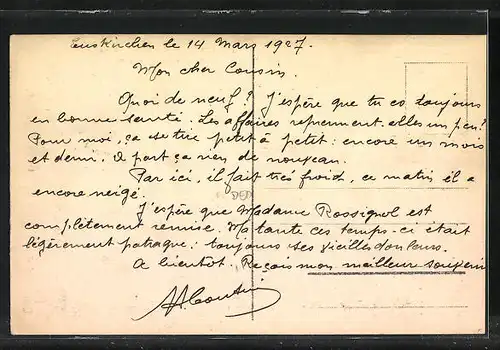 Euskirchen le 14 Mars 1927.
Mon cher Cousin.
Quoi de neuf? J'espère que tu es toujours
en bonne santé. Les affaires reprennent-elles un peu?
Pour moi, ça se tire petit à petit: encore un mois
et demi. À part ça rien de nouveau.
Par ici, il fait très froid, ce matin il a
encore neigé.
J'espère que Madame Rossignol est
complètement remise. Ma tante ces temps-ci était
légèrement patraque: toujours ses vieilles douleurs.
A bientôt. Reçois mon meilleur souvenir